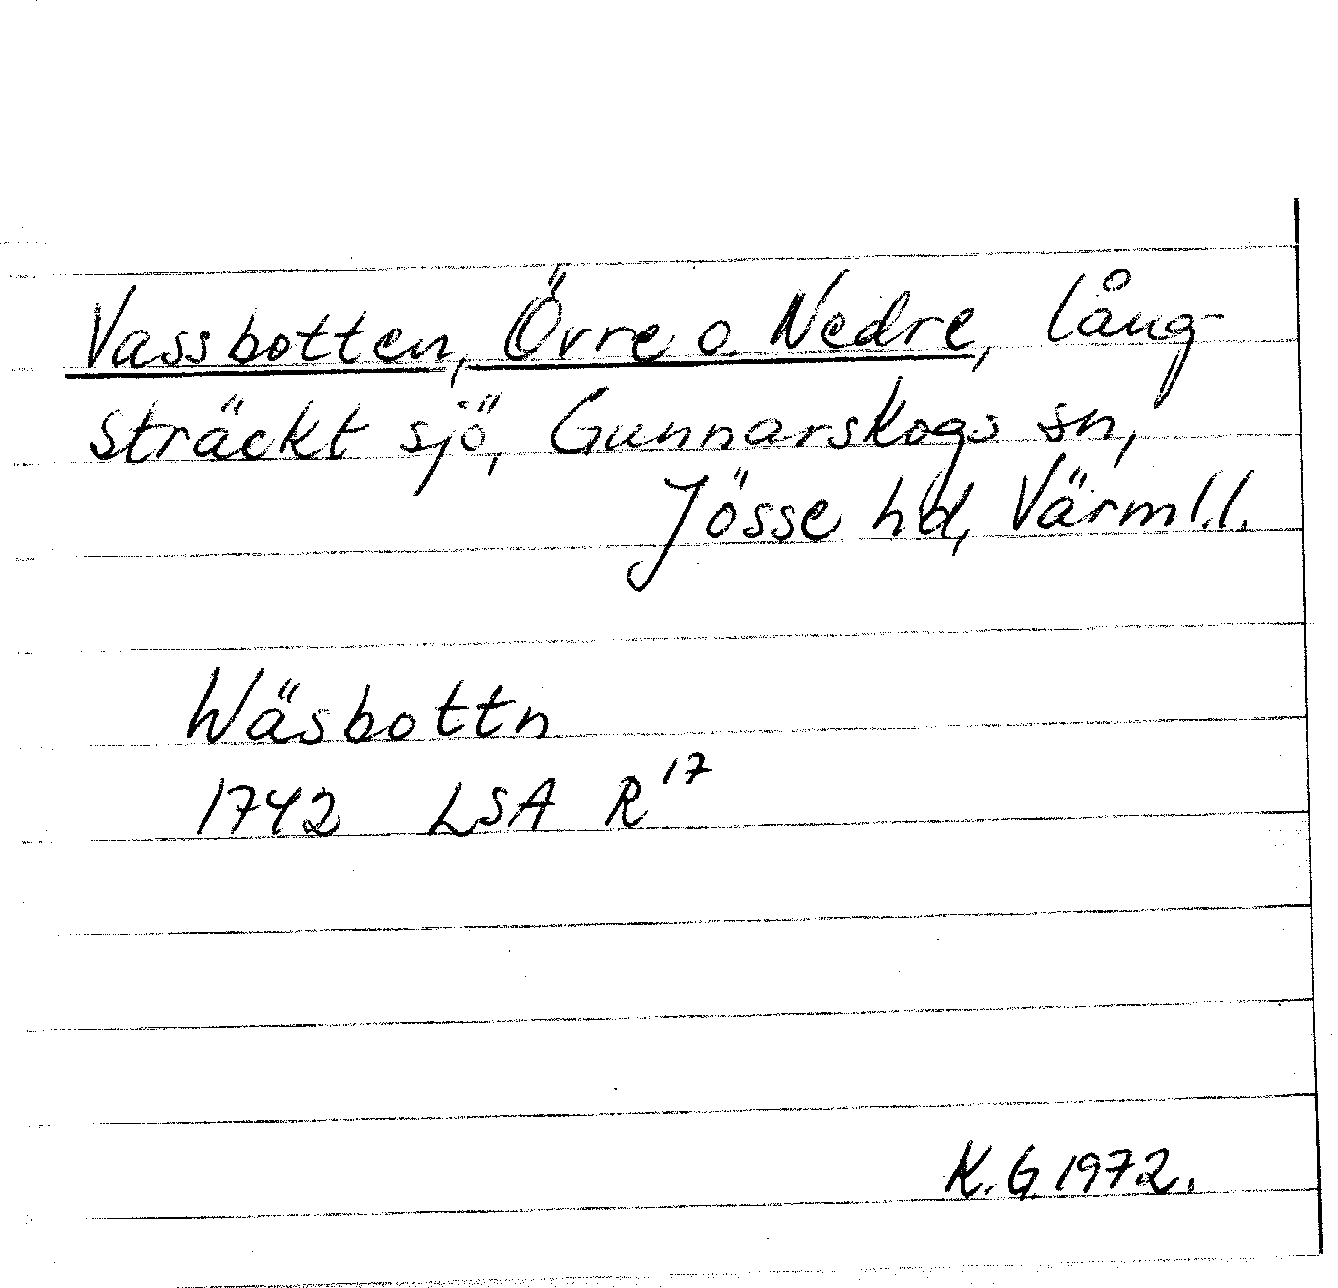 Vassbotten, Övre o. Nedre, lång-
sträckt sjö, Gunnarskogs sn,
Jösse hd, Värml.l.
Wäsbottn
1742 LSA R¹⁷
K.G 1972.